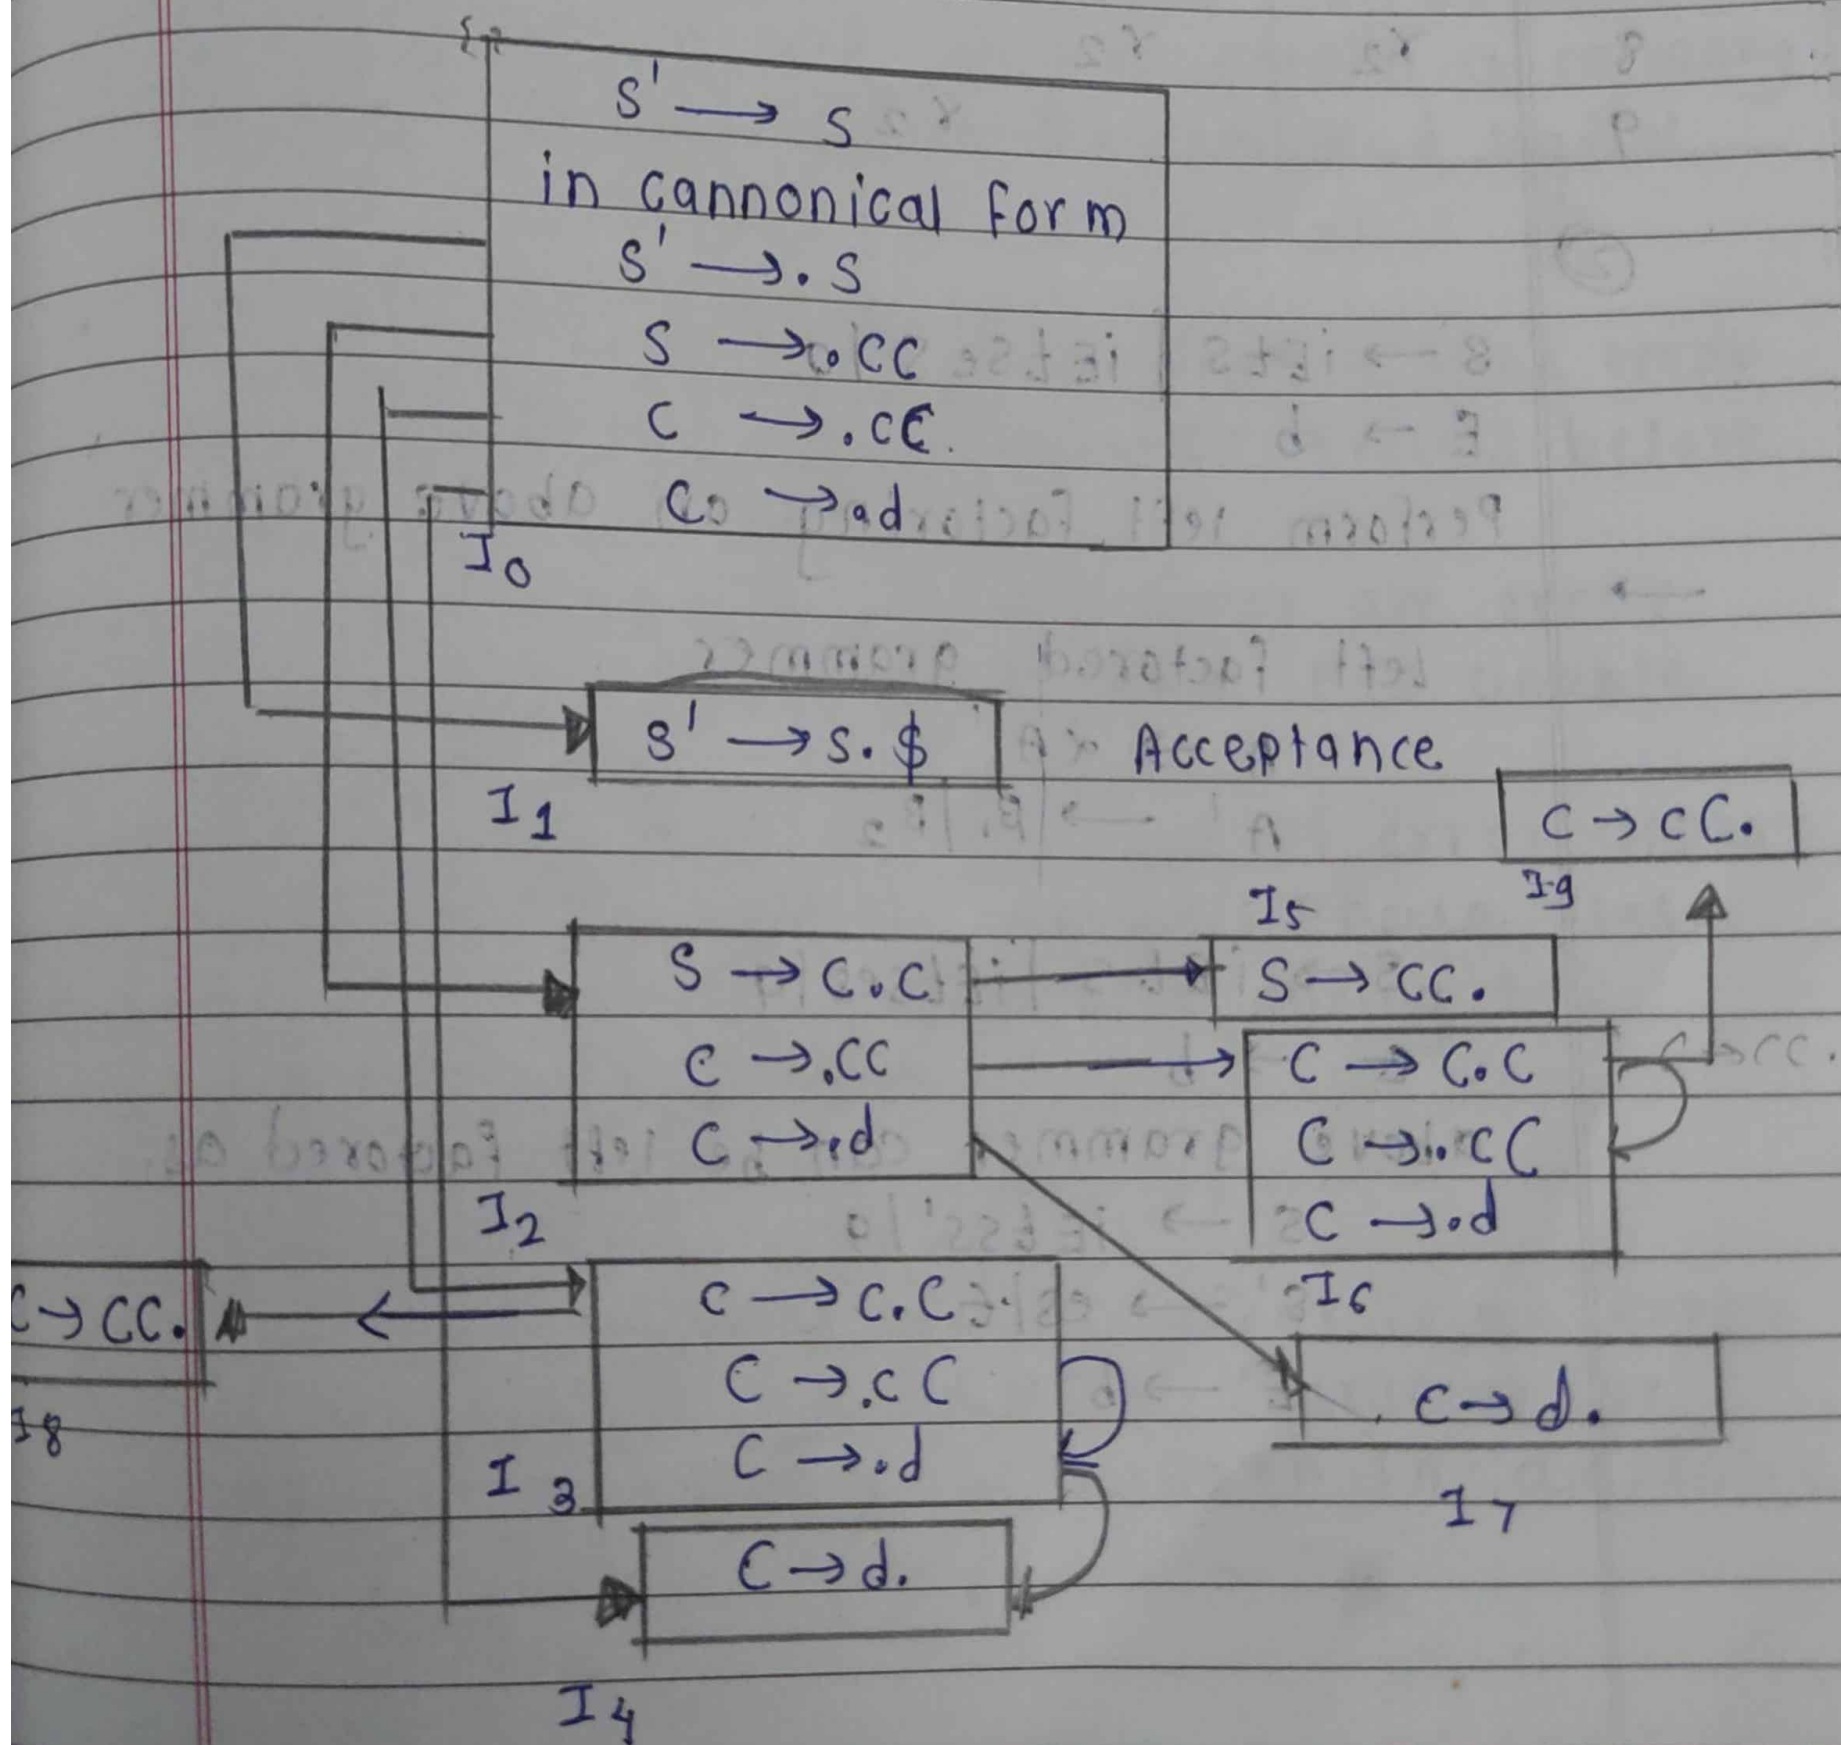 S' → S
in cannonical form
S' → .S
S → .CC
C → .cC.
C → .d
I0
S' → S.$ Acceptance
I1
C → cC.
I9
I5
S → C.C
S → CC.
C → .CC
C → C.C
C → .d
C → ..cC
C → .d
I2
I6
C → CC.
I8
C → C.C
C → .cC
C → .d
I3
C → d.
I7
C → d.
I4